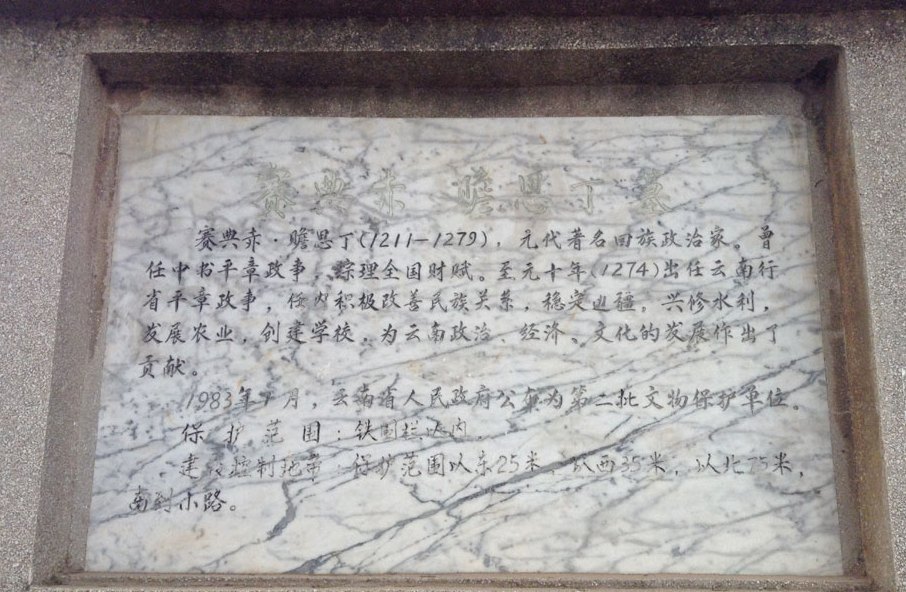 赛典赤 瞻思丁墓
赛典赤·瞻思丁(1211—1279)，元代著名回族政治家。曾
任中书平章政事，综理全国财赋。至元十年(1274)出任云南行
省平章政事，任内积极改善民族关系，稳定边疆，兴修水利，
发展农业，创建学校，为云南政治、经济、文化的发展作出了
贡献。
1983年1月，云南省人民政府公布为第二批文物保护单位。
保护范围：铁围栏以内。
建设控制地带：保护范围以东25米，以西35米，以北75米，
南到小路。